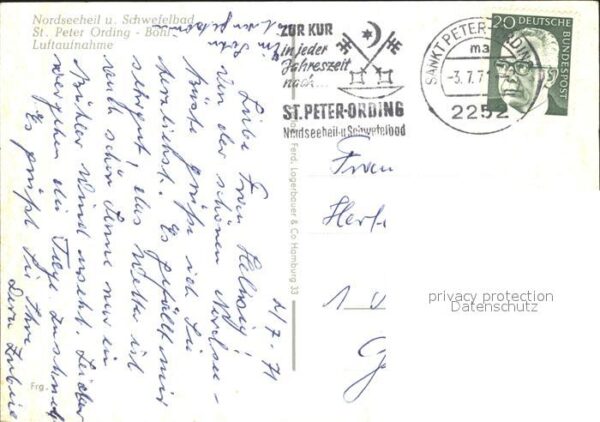 Nordseeheil u. Schwefelbad
St. Peter Ording - Böhl
Luftaufnahme
ZUR KUR
in jeder
Jahreszeit
nach...
ST. PETER-ORDING
Nordseeheil-u. Schwefelbad
SANKT PETER-ORDING
ma
-3.7.7
2252
20
DEUTSCHE
BUNDESPOST
2/7. 71
Liebe Frau Helwig!
Von der schönen Nordsee-
küste grüße ich Sie
herzlichst. Es gefällt mir
sehr gut, das Wetter ist
auch schön
Wind weht. Leider
vergehen die Tage
Es grüßt Sie Ihre
Ferd. Lagerbauer & Co Hamburg 33
Frau
1
privacy protection
Datenschutz
Frg.